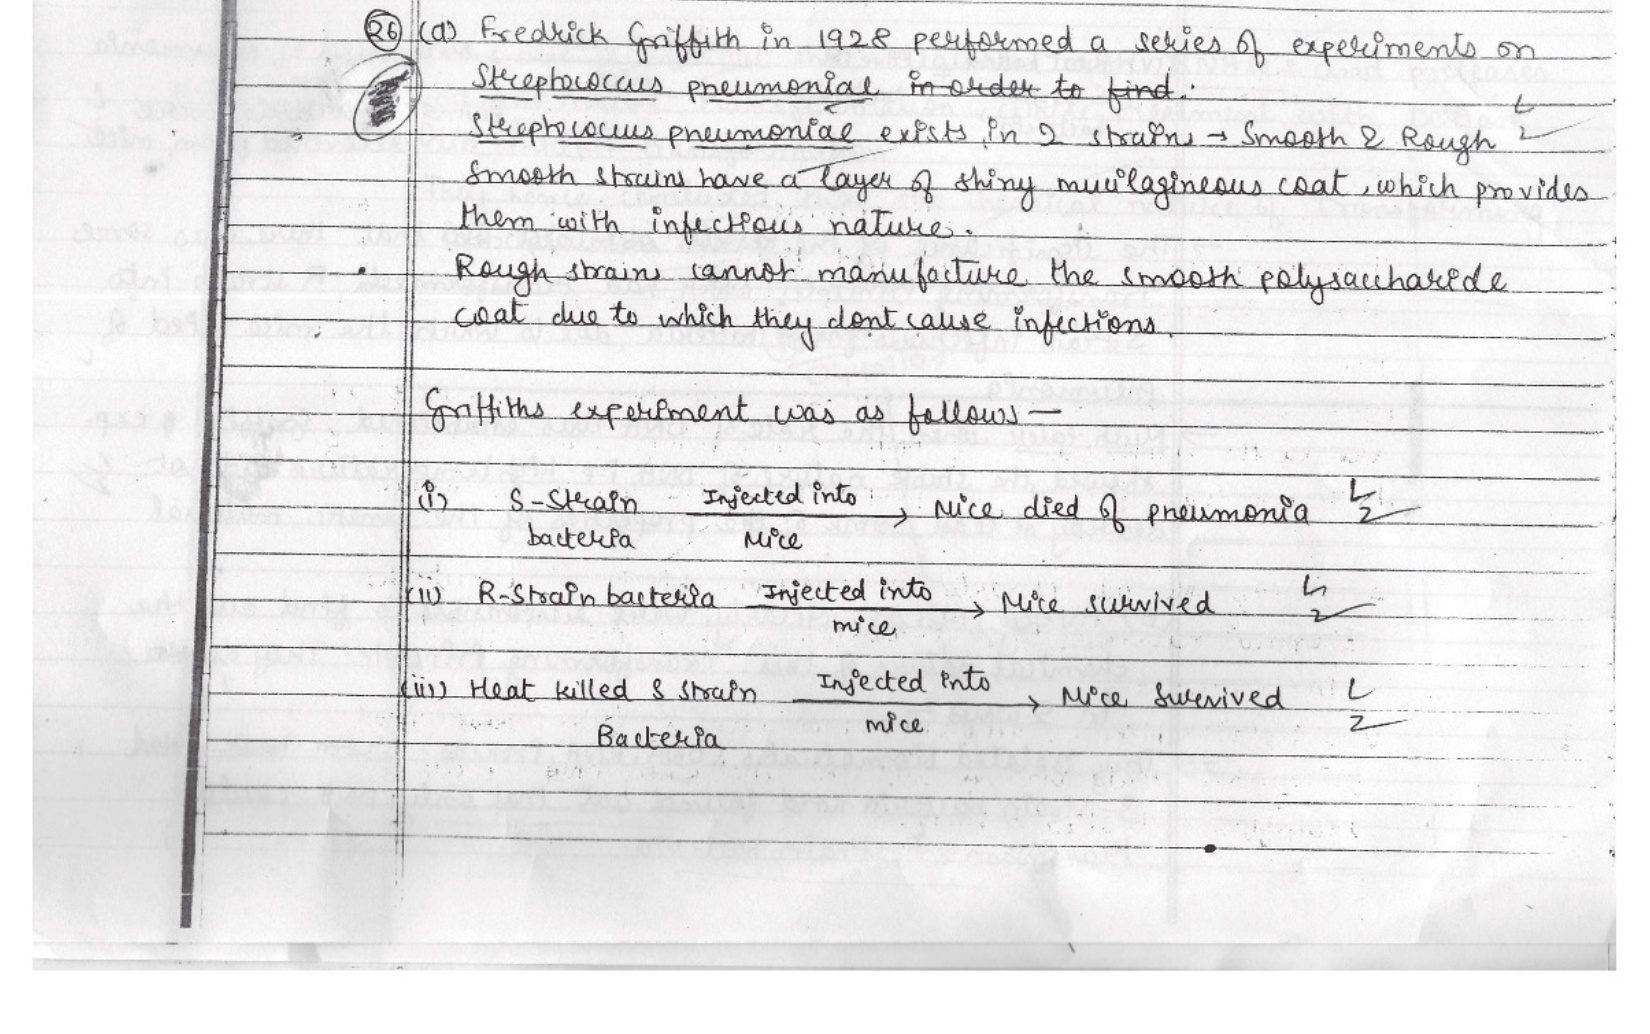 26 (a) Fredrick Griffith in 1928 performed a series of experiments on
Streptococcus pneumoniae in order to find.
Streptococcus pneumoniae exists in 2 strains → Smooth & Rough 1/2
Smooth strains have a layer of shiny mucilagineous coat, which provides
them with infectious nature.
Rough strains cannot manufacture the smooth polysaccharide
coat due to which they dont cause infections.
Griffiths experiment was as follows —
(i) S-Strain bacteria Injected into Mice → Mice died of pneumonia 1/2
(ii) R-Strain bacteria Injected into mice → Mice survived 1/2
(iii) Heat killed S strain Bacteria Injected into mice → Mice Survived 1/2